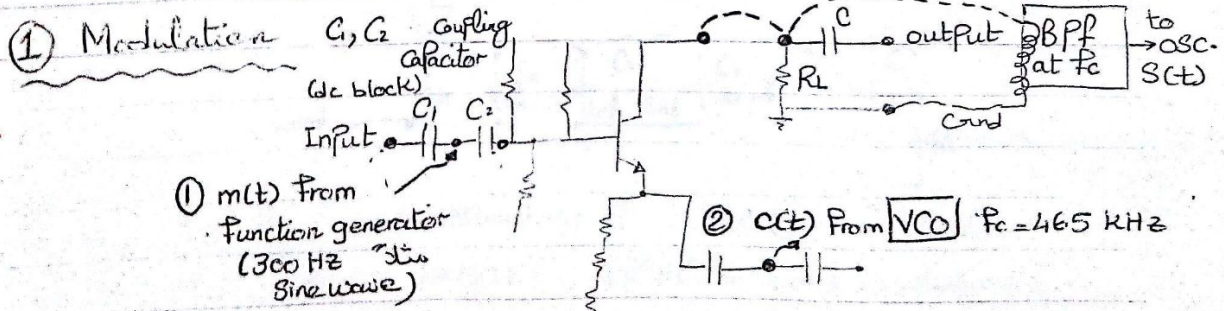 ① Modulation
C1, C2 coupling
capacitor
(dc block)
C1 C2
Input
① m(t) From
function generator
(300 Hz مثلاً
Sine wave)
② c(t) From VCO fc = 465 kHz
C
output
RL
Grnd
BPf
at fc
to
OSC.
S(t)